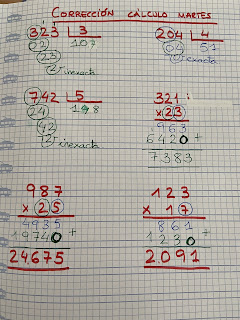 CORRECCIÓN CÁLCULO MARTES
323 | 3
02 107
23
2 inexacta
204 | 4
04 51
0 exacta
742 | 5
24 148
42
2 inexacta
321
x 23
963
6420 +
7383
987
x 25
4935
19740 +
24675
123
x 17
861
1230 +
2.091